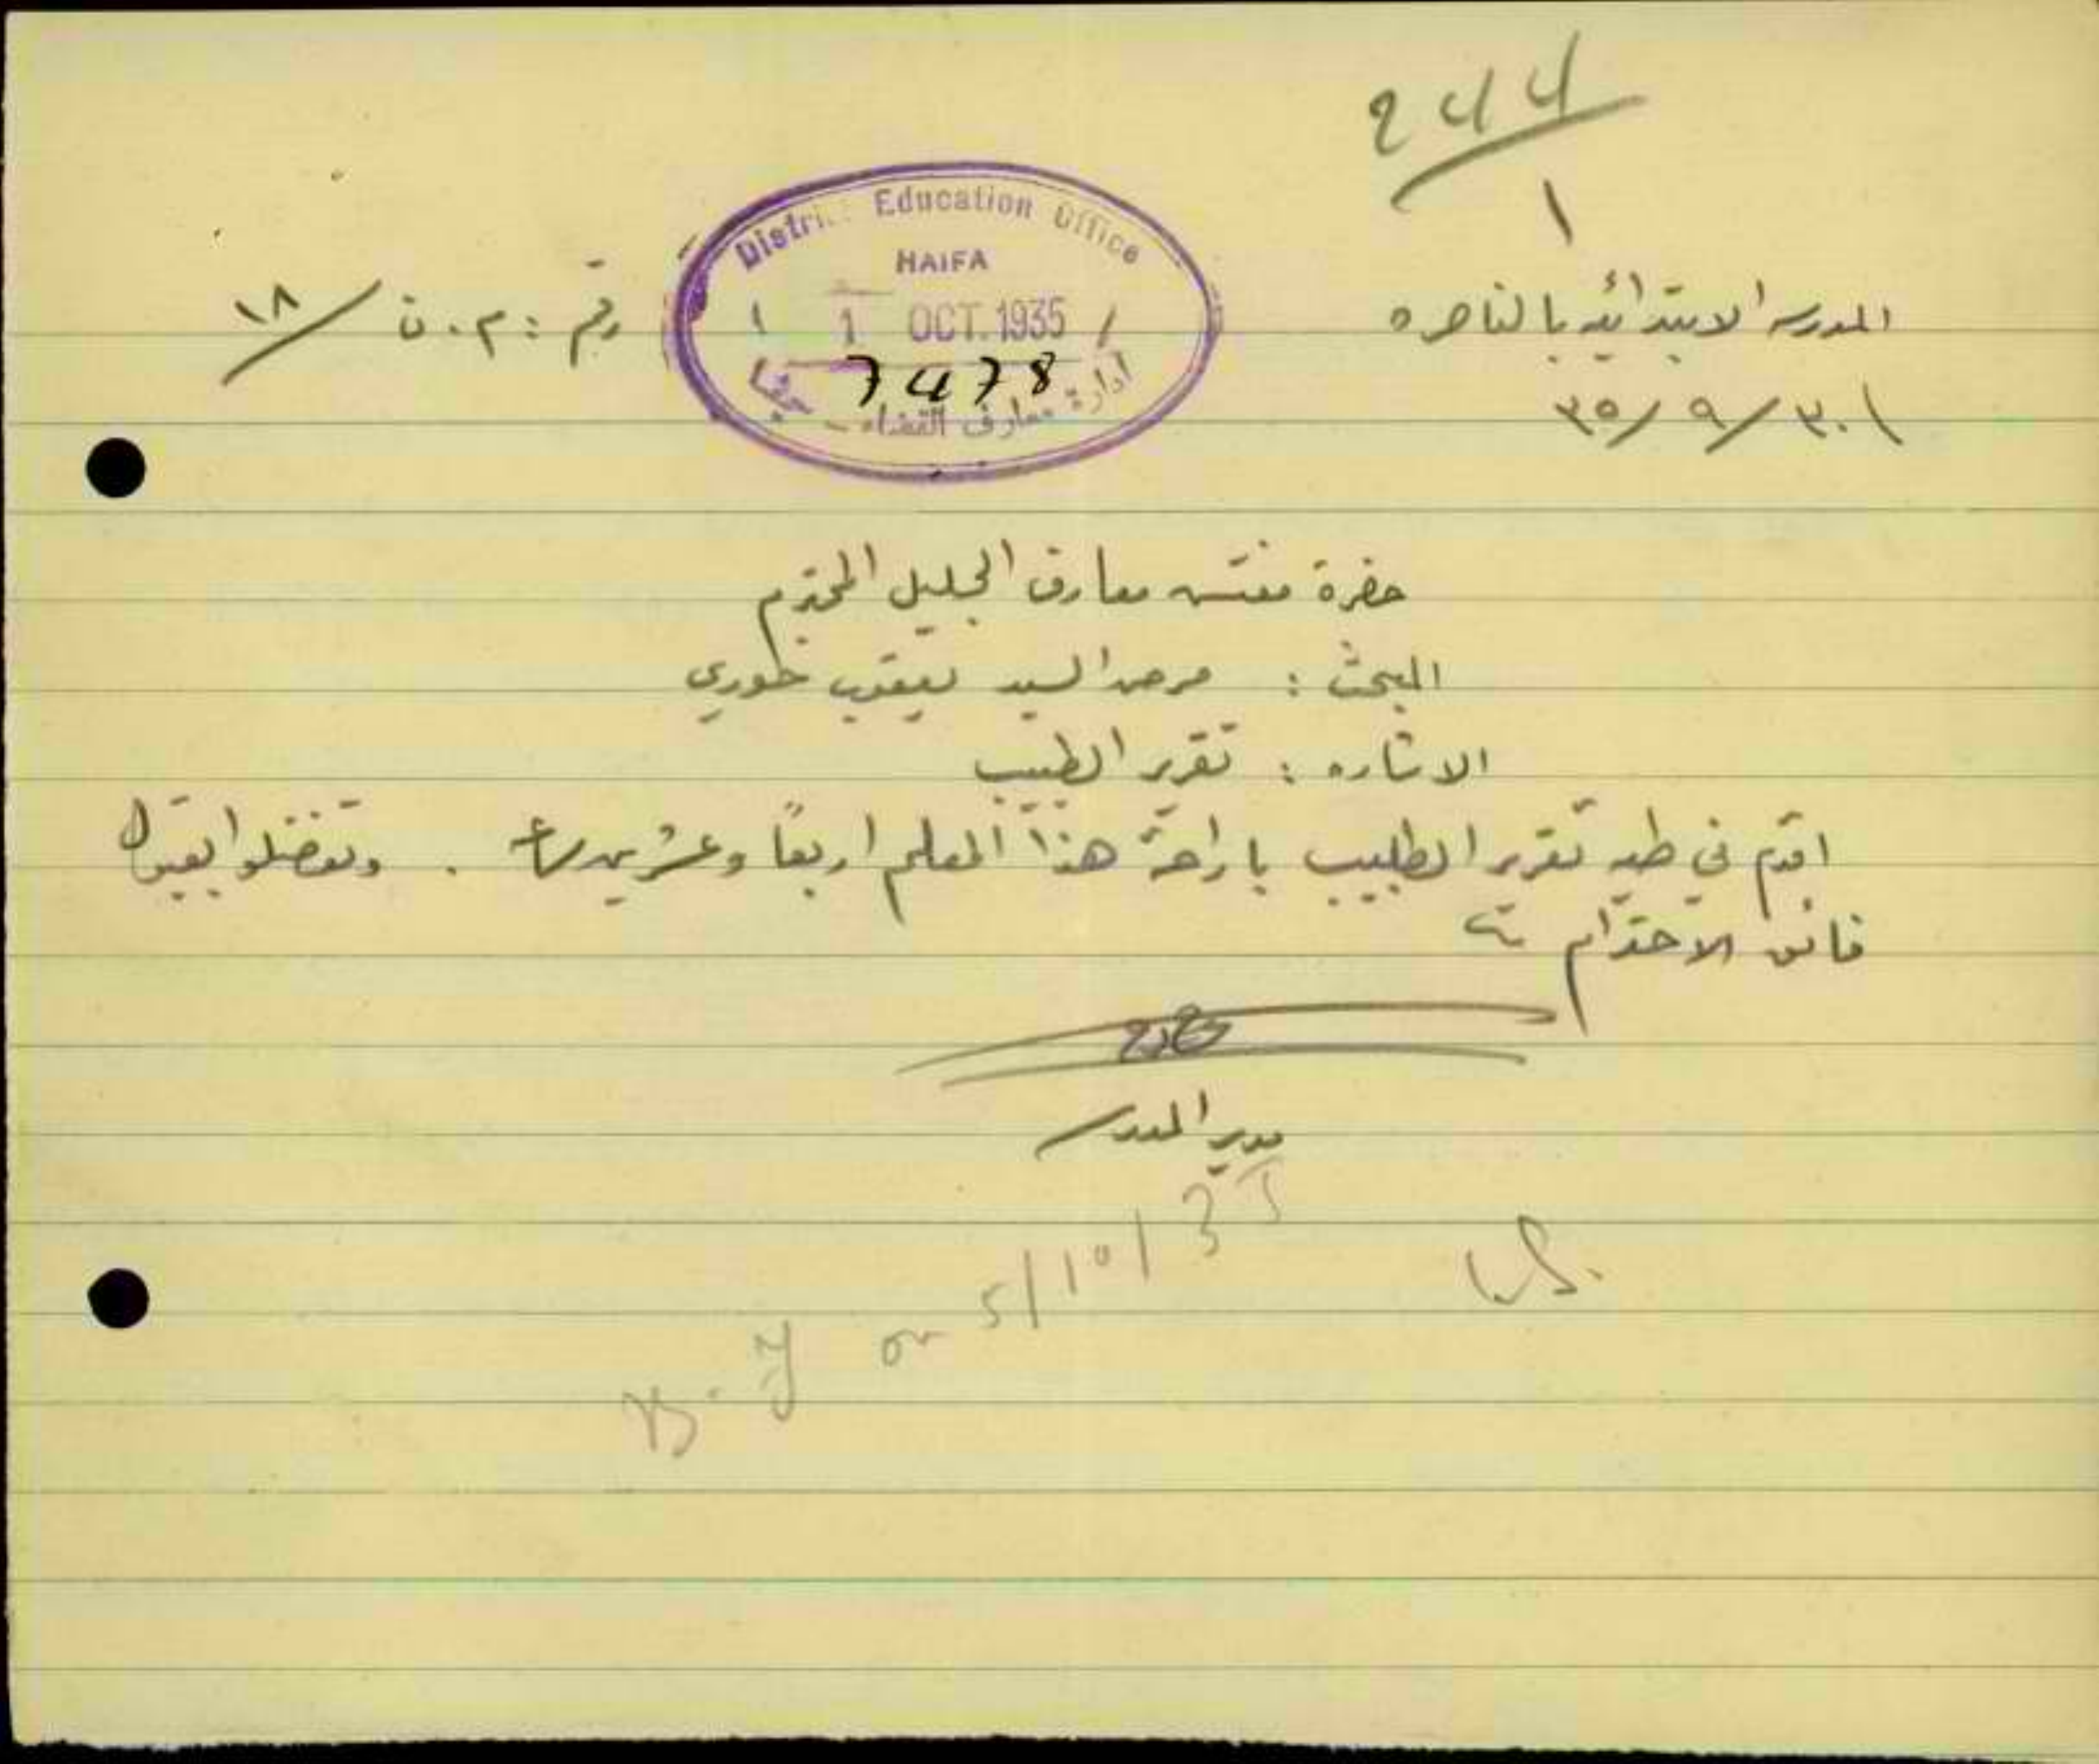 244
1
المدرسه الابتدائيه بالناصره
رقم : م . ن / ١٨
٣٠ / ٩ / ٣٥
District Education Office
HAIFA
1 OCT. 1935
7478
ادارة معارف القضاء - حيفا
حضرة مفتش معارف الجليل المحترم
المبحث : مرض السيد يعقوب خوري
الاشاره : تقرير الطبيب
اقدم في طيه تقرير الطبيب باراحة هذا المعلم اربعاً وعشرين ساعة . وتفضلوا بقبول
فائق الاحترام
مدير المدرسه
on 5/10/35